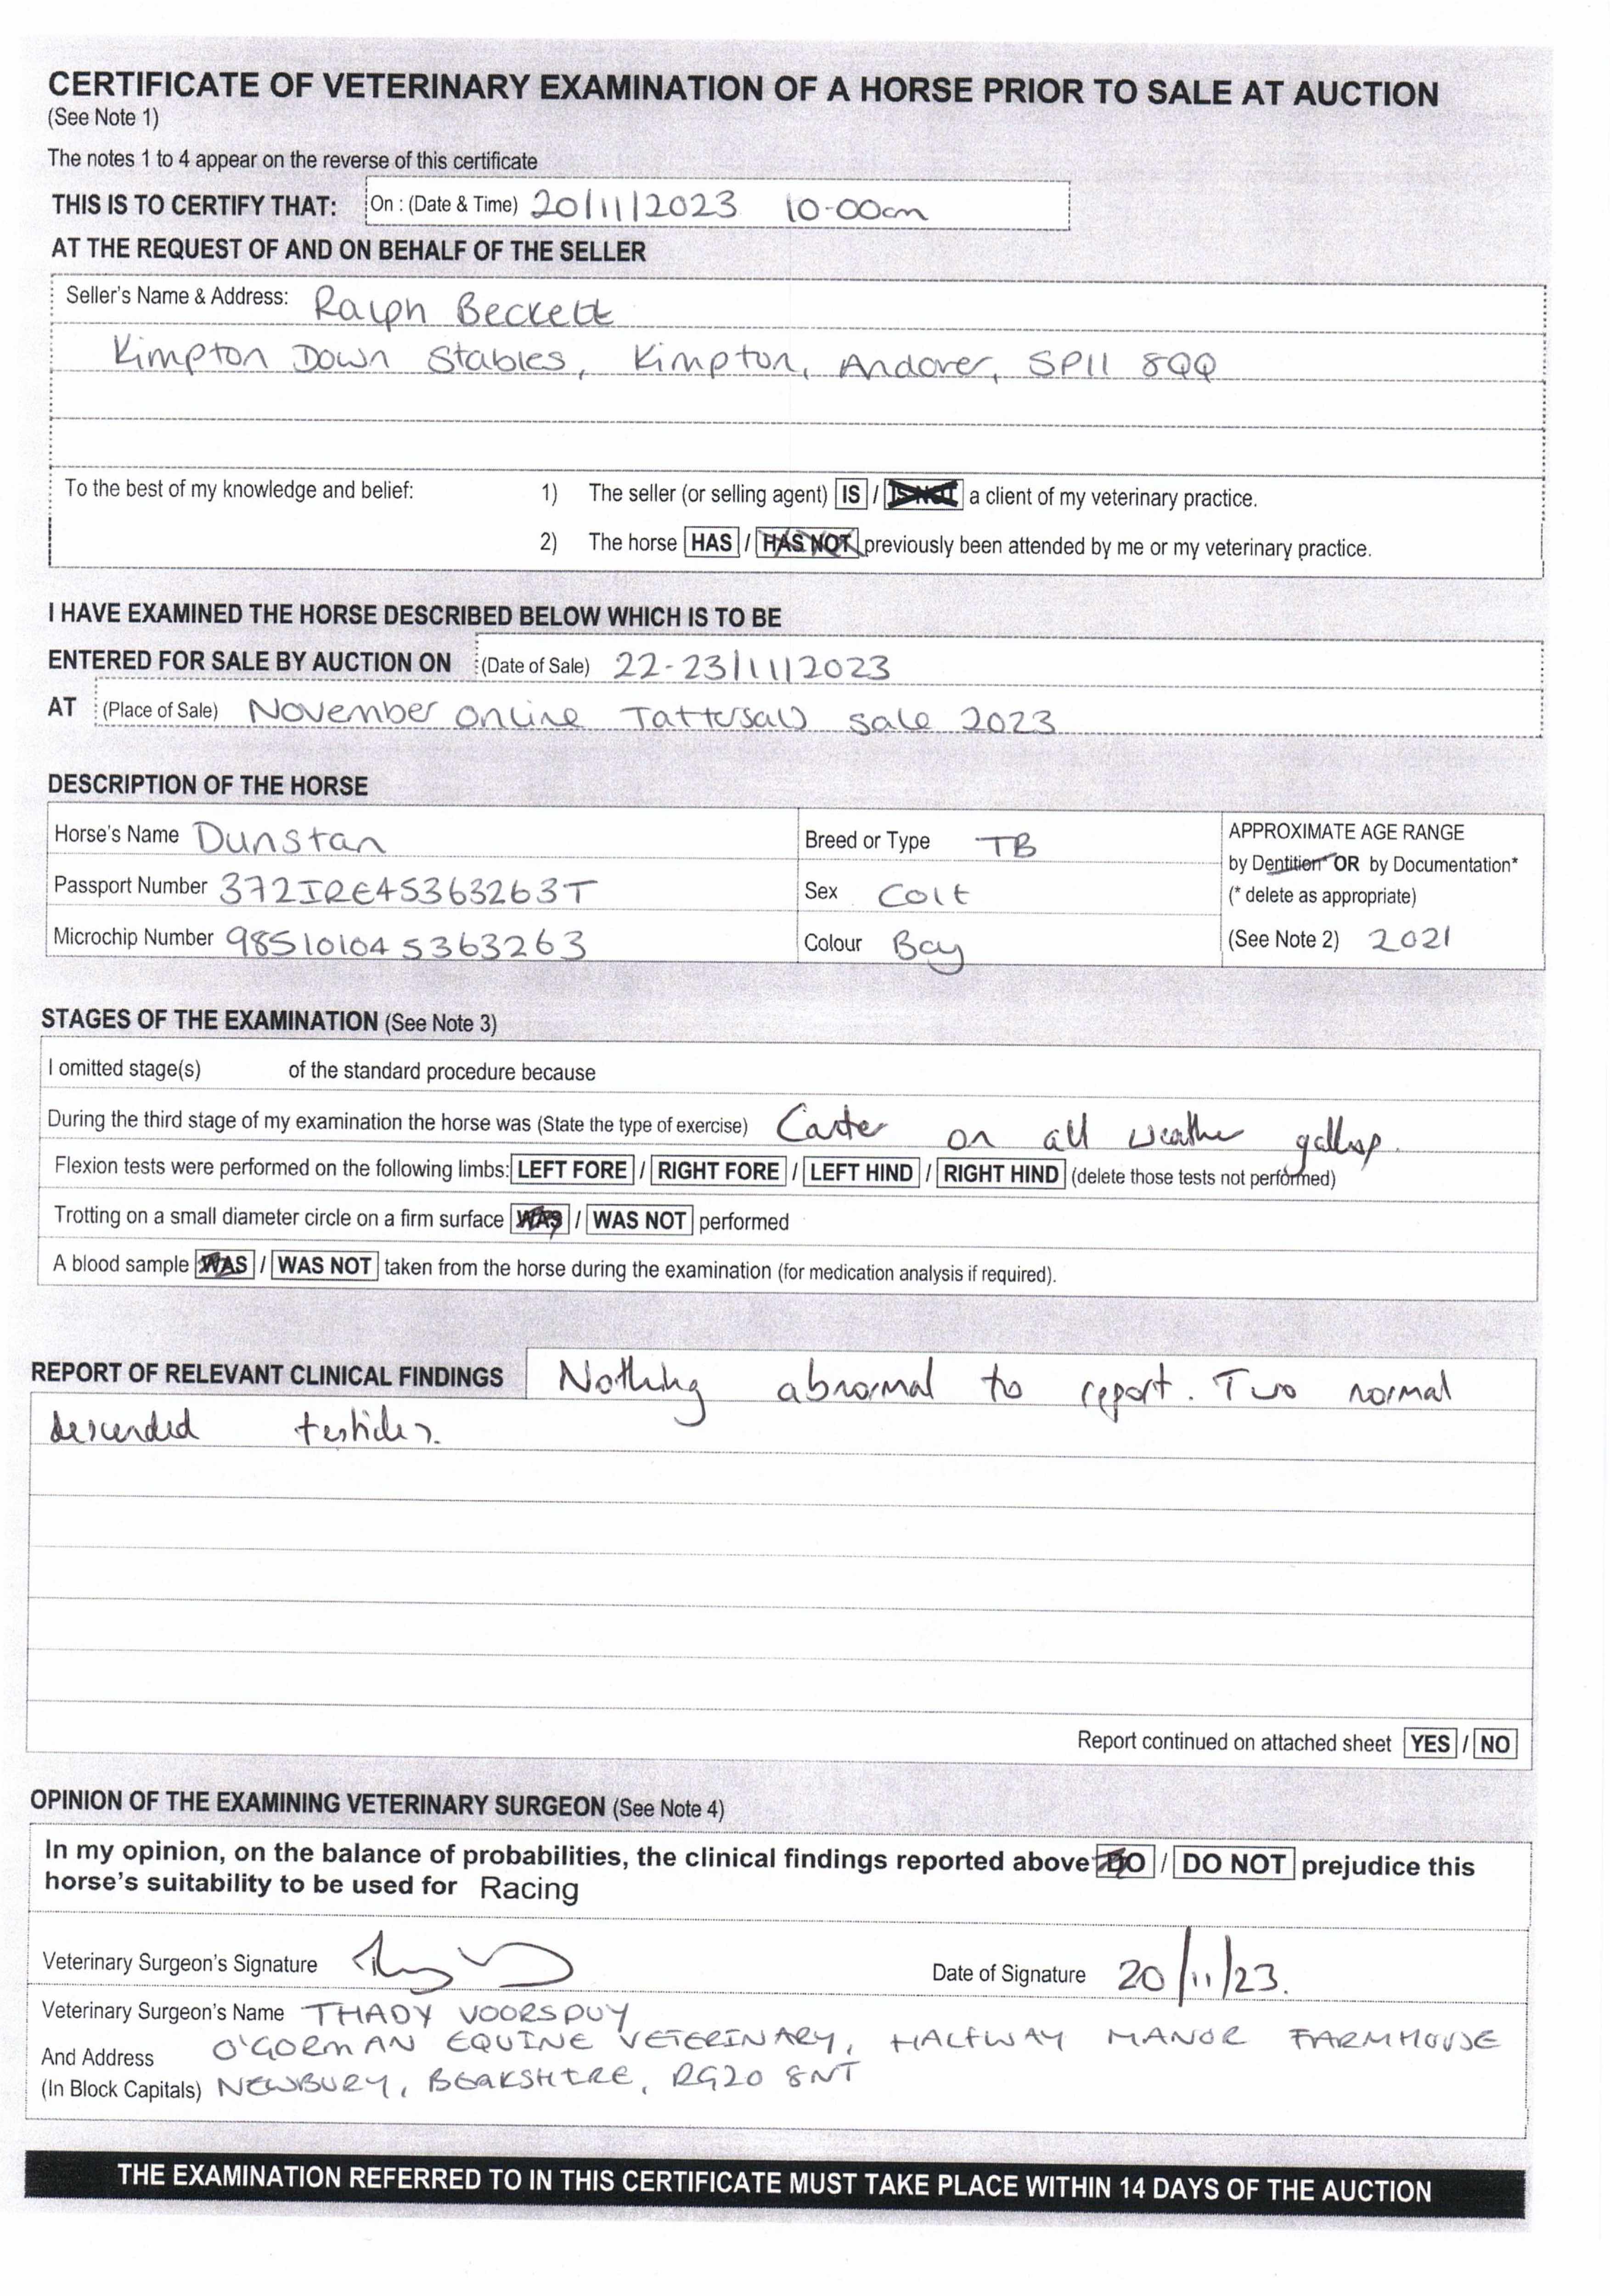 CERTIFICATE OF VETERINARY EXAMINATION OF A HORSE PRIOR TO SALE AT AUCTION
(See Note 1)
The notes 1 to 4 appear on the reverse of this certificate
THIS IS TO CERTIFY THAT: On : (Date & Time) 20/11/2023 10-00am
AT THE REQUEST OF AND ON BEHALF OF THE SELLER
Seller's Name & Address: Ralph Beckett
Kimpton Down Stables, Kimpton, Andover, SP11 8QQ
To the best of my knowledge and belief: 1) The seller (or selling agent) IS / IS NOT a client of my veterinary practice.
2) The horse HAS / HAS NOT previously been attended by me or my veterinary practice.
I HAVE EXAMINED THE HORSE DESCRIBED BELOW WHICH IS TO BE
ENTERED FOR SALE BY AUCTION ON (Date of Sale) 22-23/11/2023
AT (Place of Sale) November Online Tattersall Sale 2023
DESCRIPTION OF THE HORSE
Horse's Name Dunstan Breed or Type TB APPROXIMATE AGE RANGE
by Dentition* OR by Documentation*
Passport Number 372IRE45363263T Sex Colt (* delete as appropriate)
Microchip Number 985101045363263 Colour Bay (See Note 2) 2021
STAGES OF THE EXAMINATION (See Note 3)
I omitted stage(s) of the standard procedure because
During the third stage of my examination the horse was (State the type of exercise) Canter on all weather gallop.
Flexion tests were performed on the following limbs: LEFT FORE / RIGHT FORE / LEFT HIND / RIGHT HIND (delete those tests not performed)
Trotting on a small diameter circle on a firm surface WAS / WAS NOT performed
A blood sample WAS / WAS NOT taken from the horse during the examination (for medication analysis if required).
REPORT OF RELEVANT CLINICAL FINDINGS Nothing abnormal to report. Two normal
descended testicles.
Report continued on attached sheet YES / NO
OPINION OF THE EXAMINING VETERINARY SURGEON (See Note 4)
In my opinion, on the balance of probabilities, the clinical findings reported above DO / DO NOT prejudice this
horse's suitability to be used for Racing
Veterinary Surgeon's Signature Date of Signature 20/11/23.
Veterinary Surgeon's Name THADY VOORSPUY
And Address O'GORMAN EQUINE VETERINARY, HALFWAY MANOR FARMHOUSE
(In Block Capitals) NEWBURY, BERKSHIRE, RG20 8NT
THE EXAMINATION REFERRED TO IN THIS CERTIFICATE MUST TAKE PLACE WITHIN 14 DAYS OF THE AUCTION